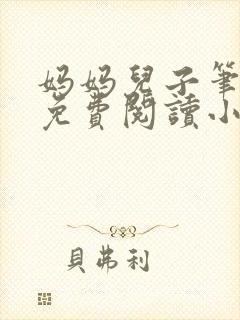 妈妈兒子筆
免費閱讀小
貝弗利